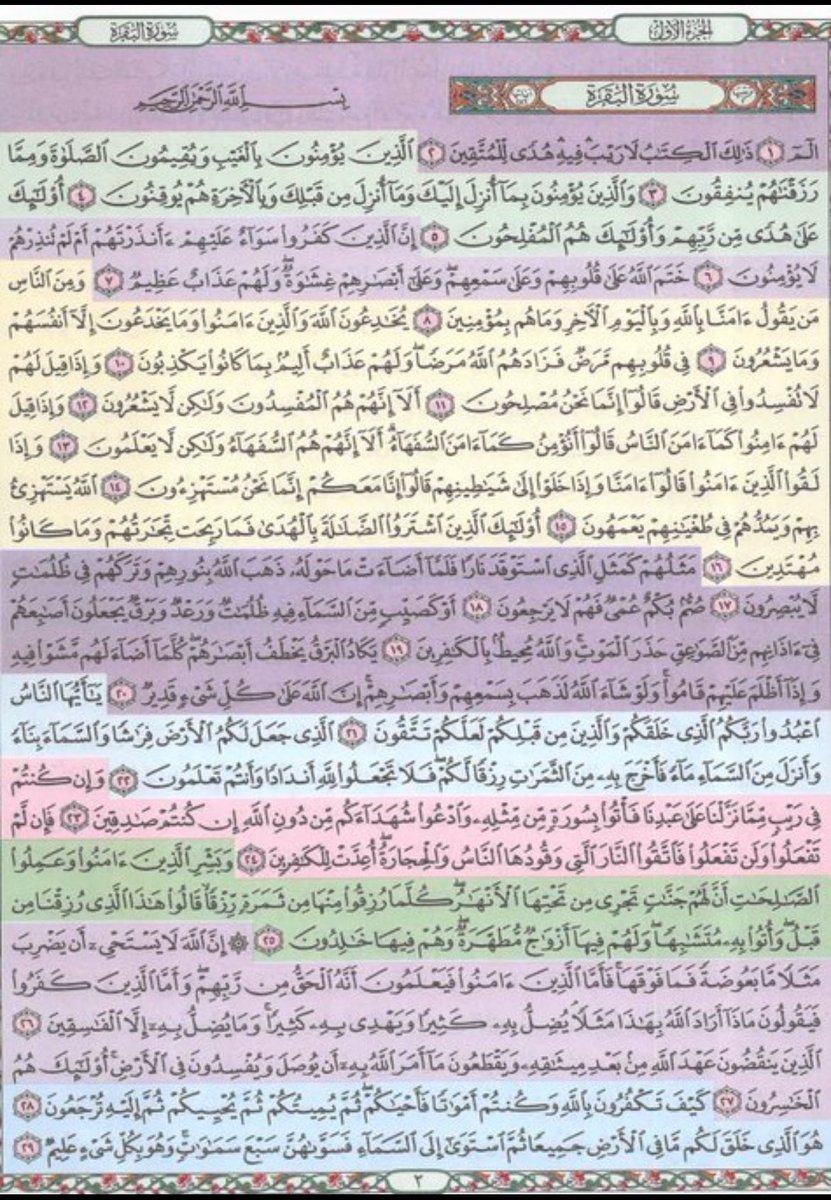 الجزء الأول
سورة البقرة
سُورَةُ البَقَرَةِ
بِسْمِ اللَّهِ الرَّحْمَٰنِ الرَّحِيمِ
الٓمٓ ١ ذَٰلِكَ ٱلْكِتَٰبُ لَا رَيْبَ ۛ فِيهِ ۛ هُدًى لِّلْمُتَّقِينَ ٢ ٱلَّذِينَ يُؤْمِنُونَ بِٱلْغَيْبِ وَيُقِيمُونَ ٱلصَّلَوٰةَ وَمِمَّا
رَزَقْنَٰهُمْ يُنفِقُونَ ٣ وَٱلَّذِينَ يُؤْمِنُونَ بِمَآ أُنزِلَ إِلَيْكَ وَمَآ أُنزِلَ مِن قَبْلِكَ وَبِٱلْأَخِرَةِ هُمْ يُوقِنُونَ ٤ أُو۟لَٰٓئِكَ
عَلَىٰ هُدًى مِّن رَّبِّهِمْ وَأُو۟لَٰٓئِكَ هُمُ ٱلْمُفْلِحُونَ ٥ إِنَّ ٱلَّذِينَ كَفَرُوا۟ سَوَآءٌ عَلَيْهِمْ ءَأَنذَرْتَهُمْ أَمْ لَمْ تُنذِرْهُمْ
لَا يُؤْمِنُونَ ٦ خَتَمَ ٱللَّهُ عَلَىٰ قُلُوبِهِمْ وَعَلَىٰ سَمْعِهِمْ ۖ وَعَلَىٰٓ أَبْصَٰرِهِمْ غِشَٰوَةٌ ۖ وَلَهُمْ عَذَابٌ عَظِيمٌ ٧ وَمِنَ ٱلنَّاسِ
مَن يَقُولُ ءَامَنَّا بِٱللَّهِ وَبِٱلْيَوْمِ ٱلْأَخِرِ وَمَا هُم بِمُؤْمِنِينَ ٨ يُخَٰدِعُونَ ٱللَّهَ وَٱلَّذِينَ ءَامَنُوا۟ وَمَا يَخْدَعُونَ إِلَّآ أَنفُسَهُمْ
وَمَا يَشْعُرُونَ ٩ فِى قُلُوبِهِم مَّرَضٌ فَزَادَهُمُ ٱللَّهُ مَرَضًا ۖ وَلَهُمْ عَذَابٌ أَلِيمٌۢ بِمَا كَانُوا۟ يَكْذِبُونَ ١٠ وَإِذَا قِيلَ لَهُمْ
لَا تُفْسِدُوا۟ فِى ٱلْأَرْضِ قَالُوٓا۟ إِنَّمَا نَحْنُ مُصْلِحُونَ ١١ أَلَآ إِنَّهُمْ هُمُ ٱلْمُفْسِدُونَ وَلَٰكِن لَّا يَشْعُرُونَ ١٢ وَإِذَا قِيلَ
لَهُمْ ءَامِنُوا۟ كَمَآ ءَامَنَ ٱلنَّاسُ قَالُوٓا۟ أَنُؤْمِنُ كَمَآ ءَامَنَ ٱلسُّفَهَآءُ ۗ أَلَآ إِنَّهُمْ هُمُ ٱلسُّفَهَآءُ وَلَٰكِن لَّا يَعْلَمُونَ ١٣ وَإِذَا
لَقُوا۟ ٱلَّذِينَ ءَامَنُوا۟ قَالُوٓا۟ ءَامَنَّا وَإِذَا خَلَوْا۟ إِلَىٰ شَيَٰطِينِهِمْ قَالُوٓا۟ إِنَّا مَعَكُمْ إِنَّمَا نَحْنُ مُسْتَهْزِءُونَ ١٤ ٱللَّهُ يَسْتَهْزِئُ
بِهِمْ وَيَمُدُّهُمْ فِى طُغْيَٰنِهِمْ يَعْمَهُونَ ١٥ أُو۟لَٰٓئِكَ ٱلَّذِينَ ٱشْتَرَوُا۟ ٱلضَّلَٰلَةَ بِٱلْهُدَىٰ فَمَا رَبِحَت تِّجَٰرَتُهُمْ وَمَا كَانُوا۟
مُهْتَدِينَ ١٦ مَثَلُهُمْ كَمَثَلِ ٱلَّذِى ٱسْتَوْقَدَ نَارًا فَلَمَّآ أَضَآءَتْ مَا حَوْلَهُۥ ذَهَبَ ٱللَّهُ بِنُورِهِمْ وَتَرَكَهُمْ فِى ظُلُمَٰتٍ
لَّا يُبْصِرُونَ ١٧ صُمٌّۢ بُكْمٌ عُمْىٌ فَهُمْ لَا يَرْجِعُونَ ١٨ أَوْ كَصَيِّبٍ مِّنَ ٱلسَّمَآءِ فِيهِ ظُلُمَٰتٌ وَرَعْدٌ وَبَرْقٌ يَجْعَلُونَ أَصَٰبِعَهُمْ
فِىٓ ءَاذَانِهِم مِّنَ ٱلصَّوَٰعِقِ حَذَرَ ٱلْمَوْتِ ۚ وَٱللَّهُ مُحِيطٌۢ بِٱلْكَٰفِرِينَ ١٩ يَكَادُ ٱلْبَرْقُ يَخْطَفُ أَبْصَٰرَهُمْ ۖ كُلَّمَآ أَضَآءَ لَهُم مَّشَوْا۟ فِيهِ
وَإِذَآ أَظْلَمَ عَلَيْهِمْ قَامُوا۟ ۚ وَلَوْ شَآءَ ٱللَّهُ لَذَهَبَ بِسَمْعِهِمْ وَأَبْصَٰرِهِمْ ۚ إِنَّ ٱللَّهَ عَلَىٰ كُلِّ شَىْءٍ قَدِيرٌ ٢٠ يَٰٓأَيُّهَا ٱلنَّاسُ
ٱعْبُدُوا۟ رَبَّكُمُ ٱلَّذِى خَلَقَكُمْ وَٱلَّذِينَ مِن قَبْلِكُمْ لَعَلَّكُمْ تَتَّقُونَ ٢١ ٱلَّذِى جَعَلَ لَكُمُ ٱلْأَرْضَ فِرَٰشًا وَٱلسَّمَآءَ بِنَآءً
وَأَنزَلَ مِنَ ٱلسَّمَآءِ مَآءً فَأَخْرَجَ بِهِۦ مِنَ ٱلثَّمَرَٰتِ رِزْقًا لَّكُمْ ۖ فَلَا تَجْعَلُوا۟ لِلَّهِ أَندَادًا وَأَنتُمْ تَعْلَمُونَ ٢٢ وَإِن كُنتُمْ
فِى رَيْبٍ مِّمَّا نَزَّلْنَا عَلَىٰ عَبْدِنَا فَأْتُوا۟ بِسُورَةٍ مِّن مِّثْلِهِۦ وَٱدْعُوا۟ شُهَدَآءَكُم مِّن دُونِ ٱللَّهِ إِن كُنتُمْ صَٰدِقِينَ ٢٣ فَإِن لَّمْ
تَفْعَلُوا۟ وَلَن تَفْعَلُوا۟ فَٱتَّقُوا۟ ٱلنَّارَ ٱلَّتِى وَقُودُهَا ٱلنَّاسُ وَٱلْحِجَارَةُ ۖ أُعِدَّتْ لِلْكَٰفِرِينَ ٢٤ وَبَشِّرِ ٱلَّذِينَ ءَامَنُوا۟ وَعَمِلُوا۟
ٱلصَّٰلِحَٰتِ أَنَّ لَهُمْ جَنَّٰتٍ تَجْرِى مِن تَحْتِهَا ٱلْأَنْهَٰرُ ۖ كُلَّمَا رُزِقُوا۟ مِنْهَا مِن ثَمَرَةٍ رِّزْقًا ۙ قَالُوا۟ هَٰذَا ٱلَّذِى رُزِقْنَا مِن
قَبْلُ ۖ وَأُتُوا۟ بِهِۦ مُتَشَٰبِهًا ۖ وَلَهُمْ فِيهَآ أَزْوَٰجٌ مُّطَهَّرَةٌ ۖ وَهُمْ فِيهَا خَٰلِدُونَ ٢٥ ۞ إِنَّ ٱللَّهَ لَا يَسْتَحْىِۦٓ أَن يَضْرِبَ
مَثَلًا مَّا بَعُوضَةً فَمَا فَوْقَهَا ۚ فَأَمَّا ٱلَّذِينَ ءَامَنُوا۟ فَيَعْلَمُونَ أَنَّهُ ٱلْحَقُّ مِن رَّبِّهِمْ ۖ وَأَمَّا ٱلَّذِينَ كَفَرُوا۟
فَيَقُولُونَ مَاذَآ أَرَادَ ٱللَّهُ بِهَٰذَا مَثَلًا ۘ يُضِلُّ بِهِۦ كَثِيرًا وَيَهْدِى بِهِۦ كَثِيرًا ۚ وَمَا يُضِلُّ بِهِۦٓ إِلَّا ٱلْفَٰسِقِينَ ٢٦
ٱلَّذِينَ يَنقُضُونَ عَهْدَ ٱللَّهِ مِنۢ بَعْدِ مِيثَٰقِهِۦ وَيَقْطَعُونَ مَآ أَمَرَ ٱللَّهُ بِهِۦٓ أَن يُوصَلَ وَيُفْسِدُونَ فِى ٱلْأَرْضِ ۚ أُو۟لَٰٓئِكَ هُمُ
ٱلْخَٰسِرُونَ ٢٧ كَيْفَ تَكْفُرُونَ بِٱللَّهِ وَكُنتُمْ أَمْوَٰتًا فَأَحْيَٰكُمْ ۖ ثُمَّ يُمِيتُكُمْ ثُمَّ يُحْيِيكُمْ ثُمَّ إِلَيْهِ تُرْجَعُونَ ٢٨
هُوَ ٱلَّذِى خَلَقَ لَكُم مَّا فِى ٱلْأَرْضِ جَمِيعًا ثُمَّ ٱسْتَوَىٰٓ إِلَى ٱلسَّمَآءِ فَسَوَّىٰهُنَّ سَبْعَ سَمَٰوَٰتٍ ۚ وَهُوَ بِكُلِّ شَىْءٍ عَلِيمٌ ٢٩